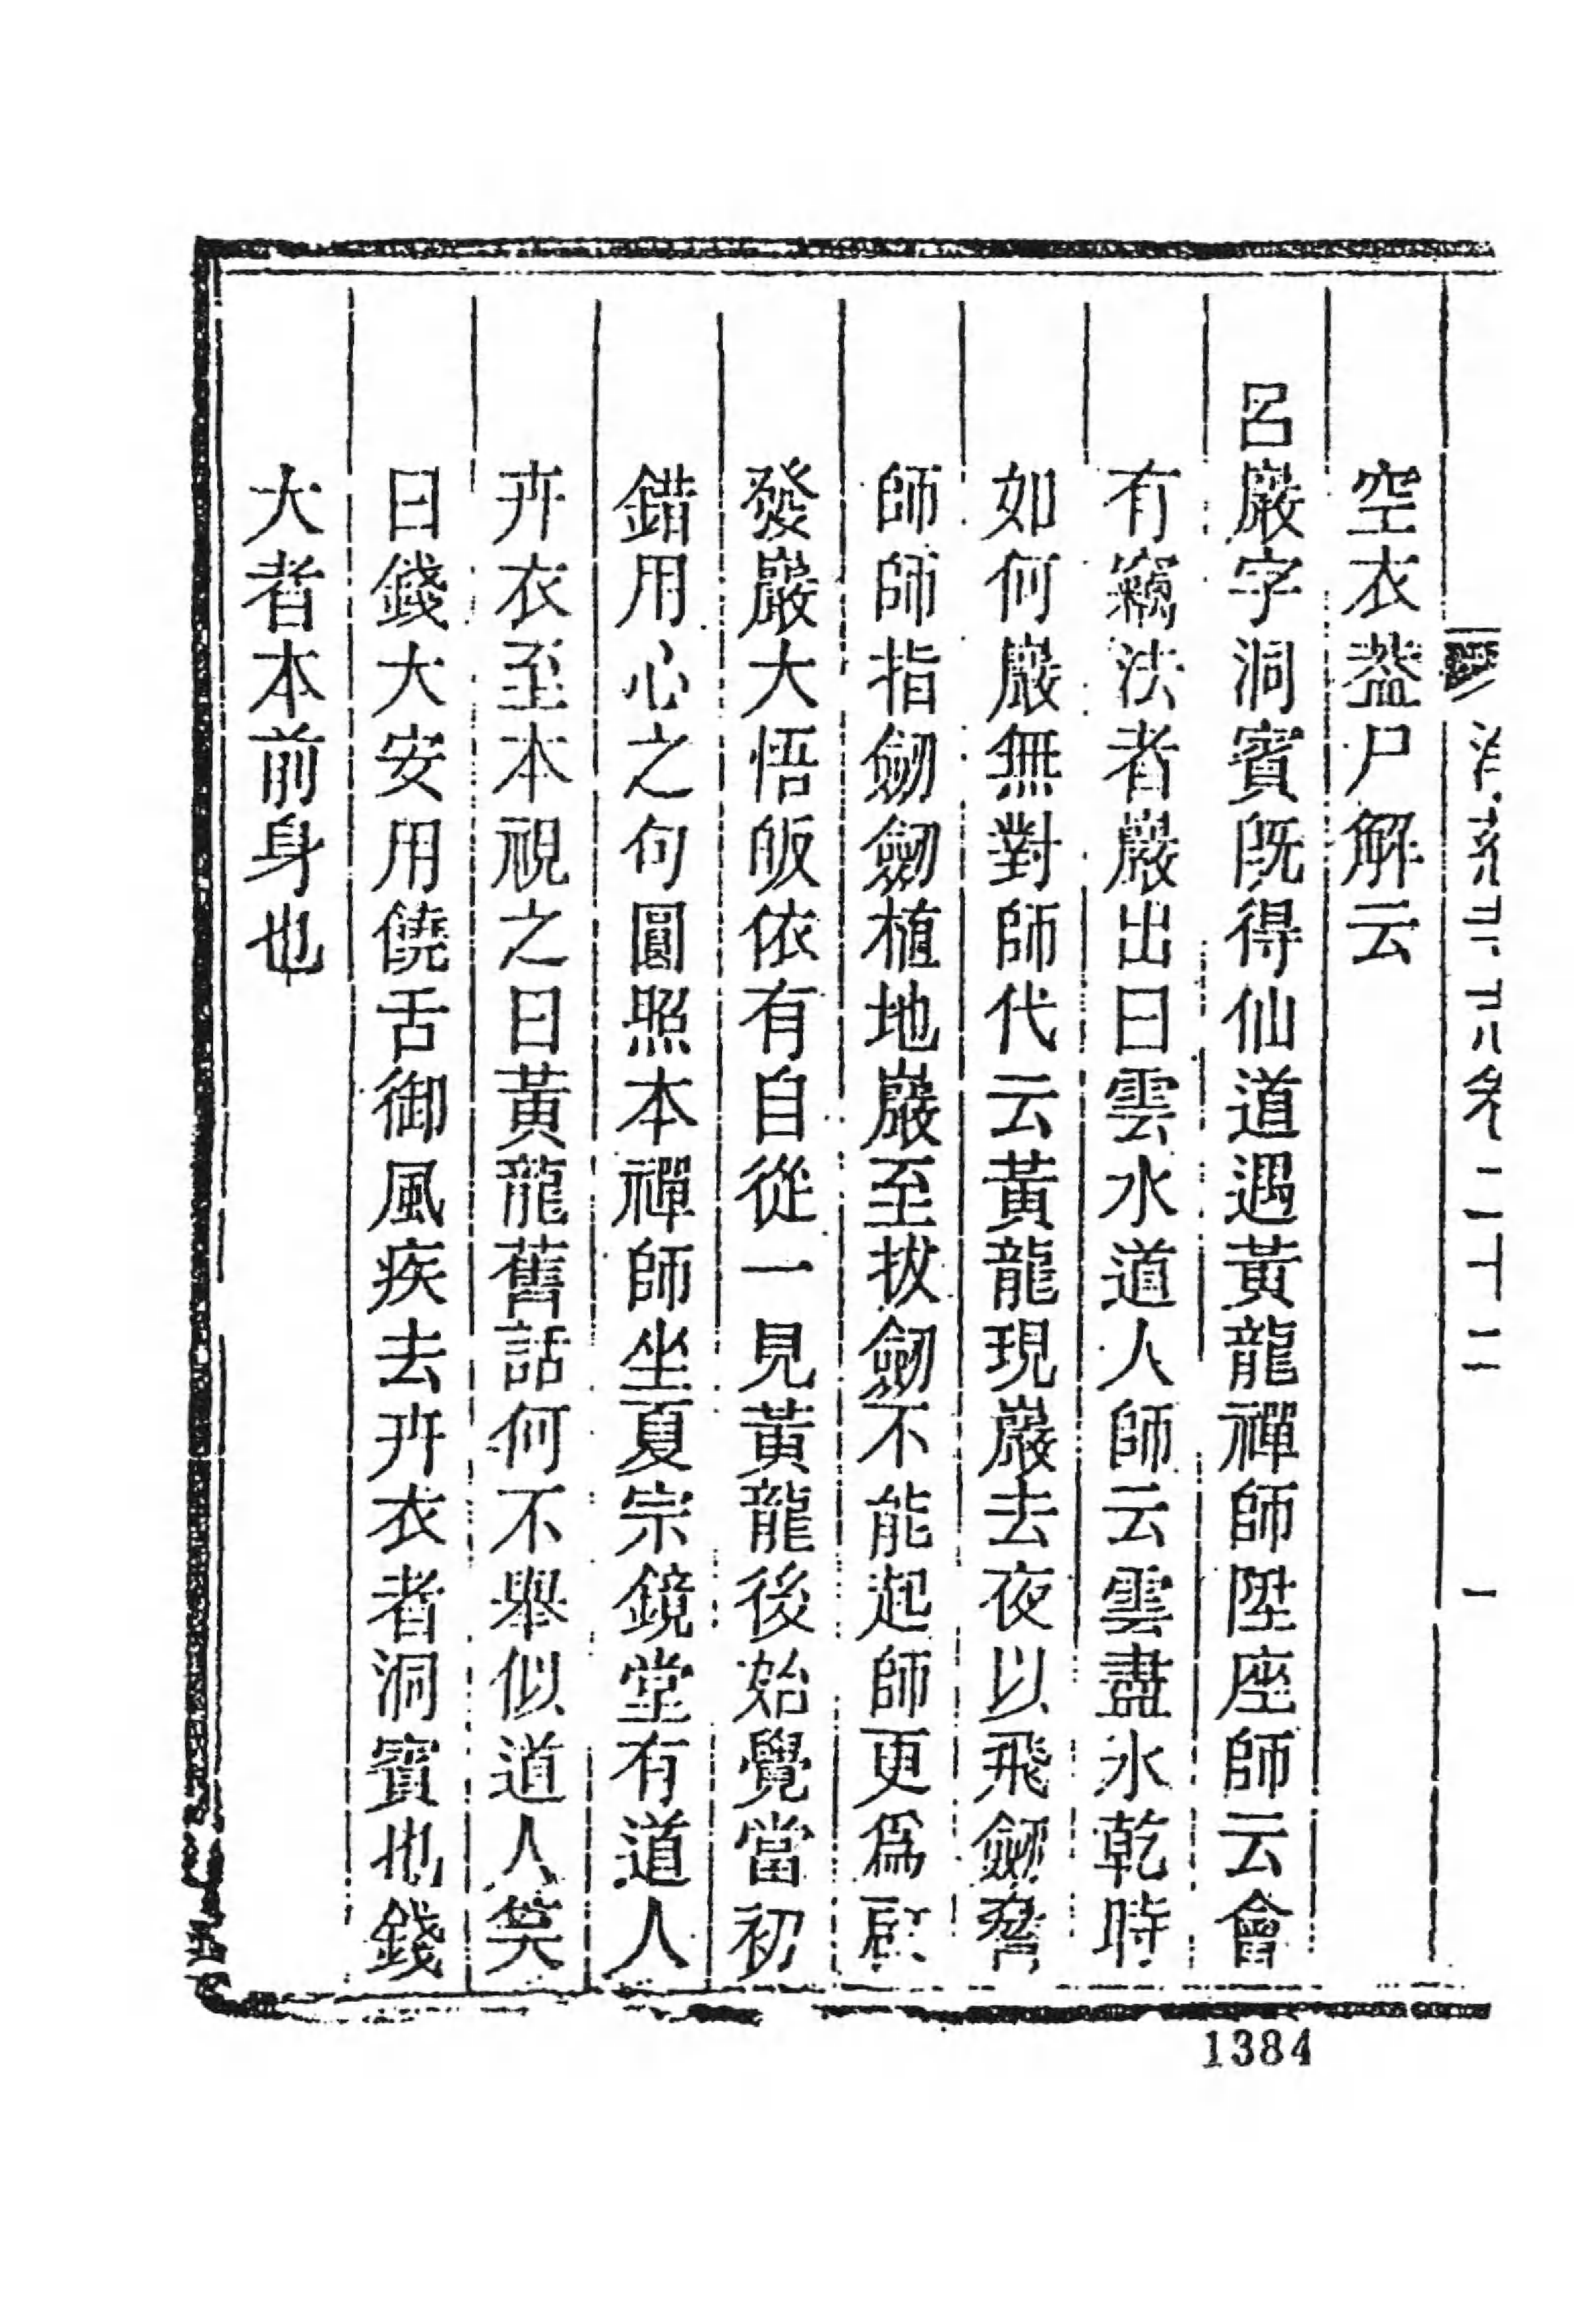 空衣葢尸解云
呂巖字洞賓旣得仙道遇黃龍禪師陞座師云會
有竊法者巖出曰雲水道人師云雲盡水乾時
如何巖無對師代云黃龍現巖去夜以飛劒脅
師師指劒劒植地巖至拔劒不能起師更爲啟
發巖大悟皈依有自從一見黃龍後始覺當初
錯用心之句圓照本禪師坐夏宗鏡堂有道人
卉衣至本視之曰黃龍舊話何不舉似道人笑
曰錢大安用饒舌御風疾去卉衣者洞賓也錢
大者本前身也
卷二十二
一
1384